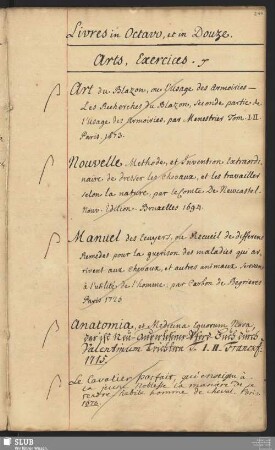 Livres in Octavo, et in Douze.
Arts, Exercices.
Art du Blazon, ou l'Usage des Armoiries —
Les Recherches du Blazon, seconde partie de
l'Usage des Armoiries. par Menestrier Tom. I.II
Paris 1673.
Nouvelle Methode, et Invention extraordi-
naire de dresser les Chevaux, et les travailler
selon la nature. par le Comte de Newcastel
Nouv. Edition. Bruxelles 1694.
Manuel des Ecuyers, ou Recueil de differens
Remedes pour la guerison des maladies qui ar-
rivent aux chevaux, et autres animaux servans
à l'utilité de l'homme. par Carbon de Begrieres
Paris 1725.
Anatomia, et Medicina Equorum Nova,
das ist Neu- Pferd-
Valentinum Trichter T. I. II. Francof.
1715.
Le Cavalier parfait, qui enseigne à
la jeune Noblesse la maniere de se
rendre habile homme de cheval. Paris.
SLUB
Wir führen Wissen.